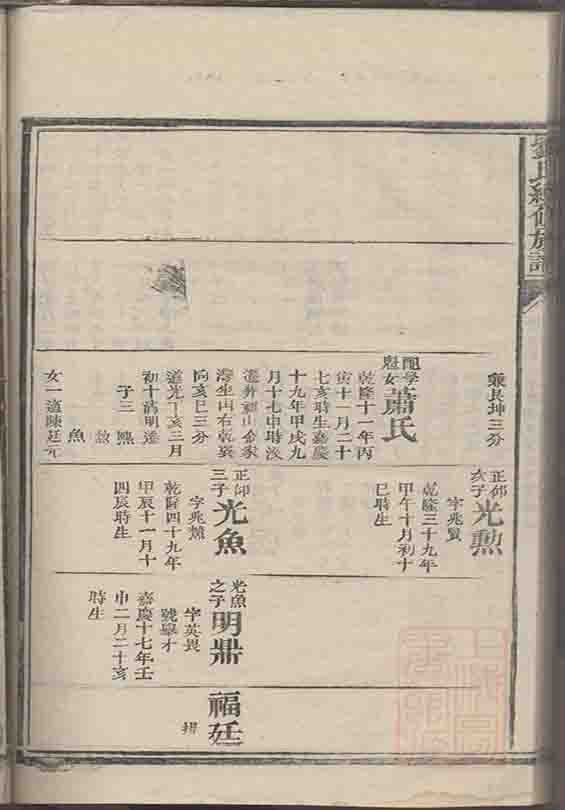 劉氏續修族譜
兼艮坤三分
配學魁女蕭氏
乾隆十一年丙
寅十一月二十
七亥時生嘉慶
十九年甲戌九
月十七申時沒
葬井頭山金家
灣坐山右乾巽
向亥巳三分
道光丁亥三月
初十清明遷
子三 勲
魚
女一適陳廷元
正仰次子光勲
字兆賢
乾隆三十九年
甲午十月初十
巳時生
正仰三子光魚
字兆頫
乾隆四十九年
甲辰十一月十
四辰時生
光魚之子明鼎
字英畏
號舉才
嘉慶十七年壬
申二月二十亥
時生
福廷